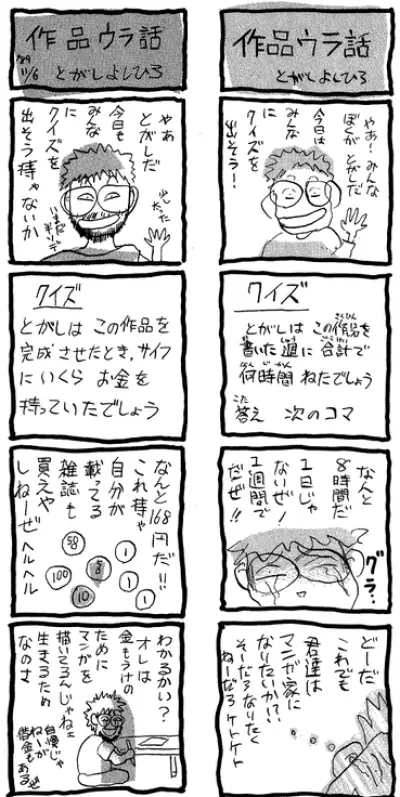 作品ウラ話
とがしよしひろ
やあ!みんな
ぼくがとがしだ
今日は
みんな
に
クイズを
出そう!
クイズ
とがしは この作品を
書いた週に合計で
何時間 ねたでしょう
答え 次のコマ
なんと
8時間だ
1日じゃ
ないぜ!
1週間で
だぜ!!
グラ…
どーだ
これでも
君達は
マンガ家に
なりたいか?!
そーだろなりたく
ねーだろ ケトケト
作品ウラ話
'89
11/6
とがしよしひろ
やあ
とがしだ
今日も
みんな
に
クイズを
出そう持ゃないか
クイズ
とがしは この作品を
完成させたとき,サイフ
にいくら お金を
持っていたでしょう
なんと168円だ!!
これ持ゃ
自分が
載ってる
雑誌も
買えや
しねーぜ ヘルヘル
50
5
1
1
100
10
1
わかるかい?
オレは
金もうけの
ために
マンガを
描いてるんじゃねェ
生きるため
なのさ
自慢じゃ
ねーが
借金もあるぜ